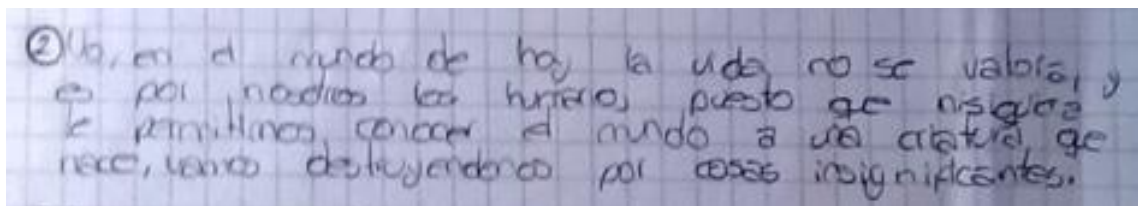 ② No, en el mundo de hoy la vida no se valora, y
es por nosotros los humanos, puesto qe nisiquiera
le permitimos conocer el mundo a una criatura qe
nace, vamos destruyendonos por cosas insignificantes.